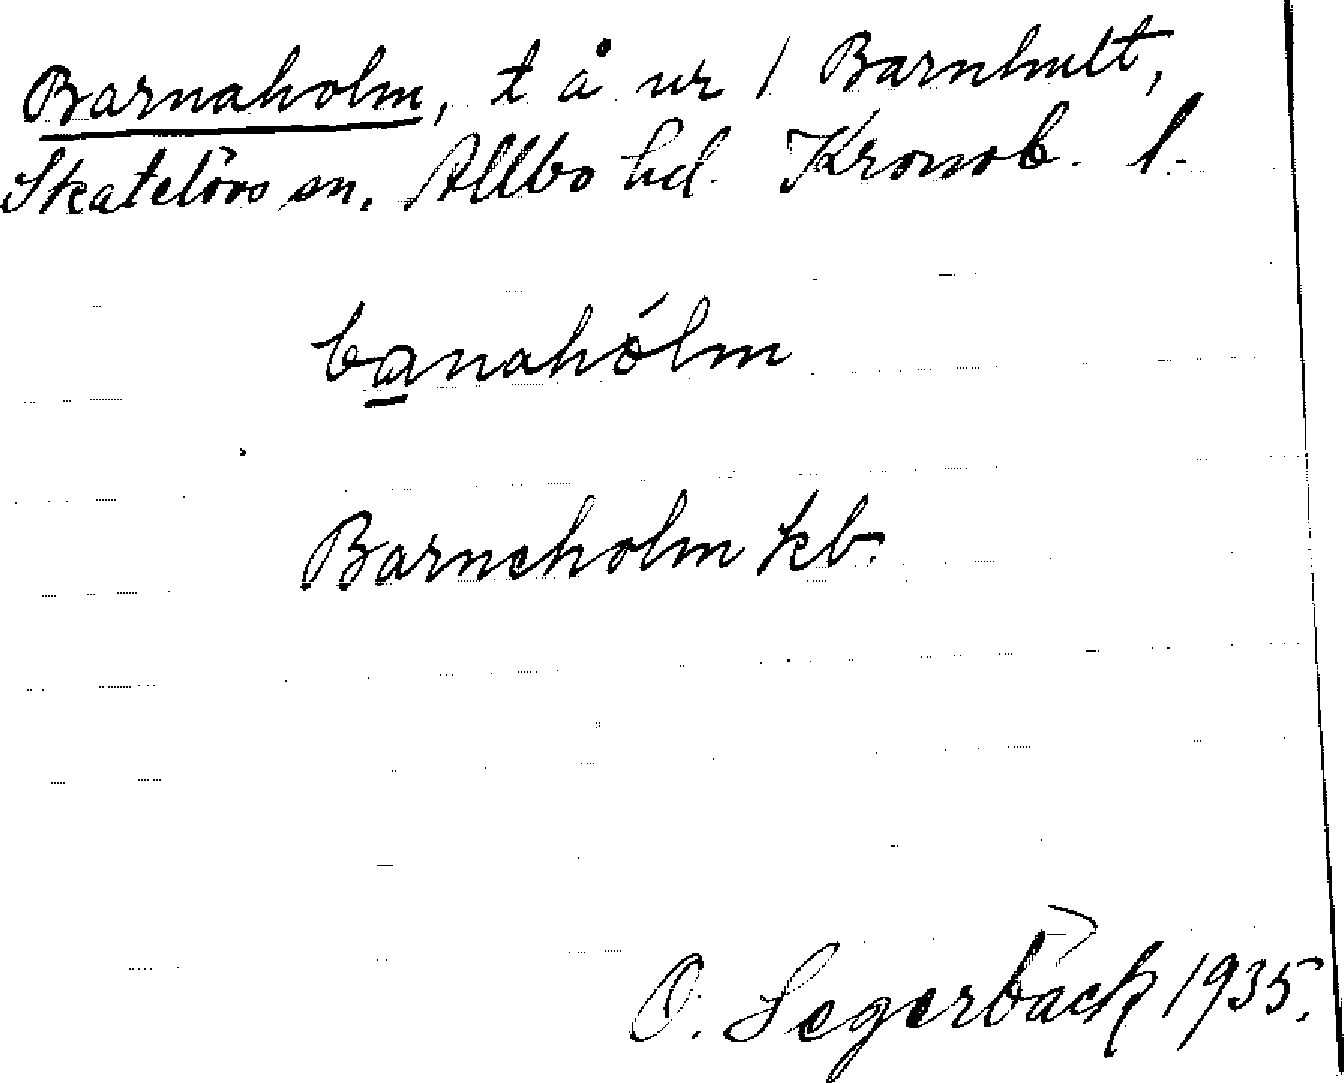 Barnaholm, t å ur 1 Barnhult,
Skatelövs sn. Allbo hd. Kronob. l.
banahólm
Barneholm kb.
O. Segerbäck 1935.